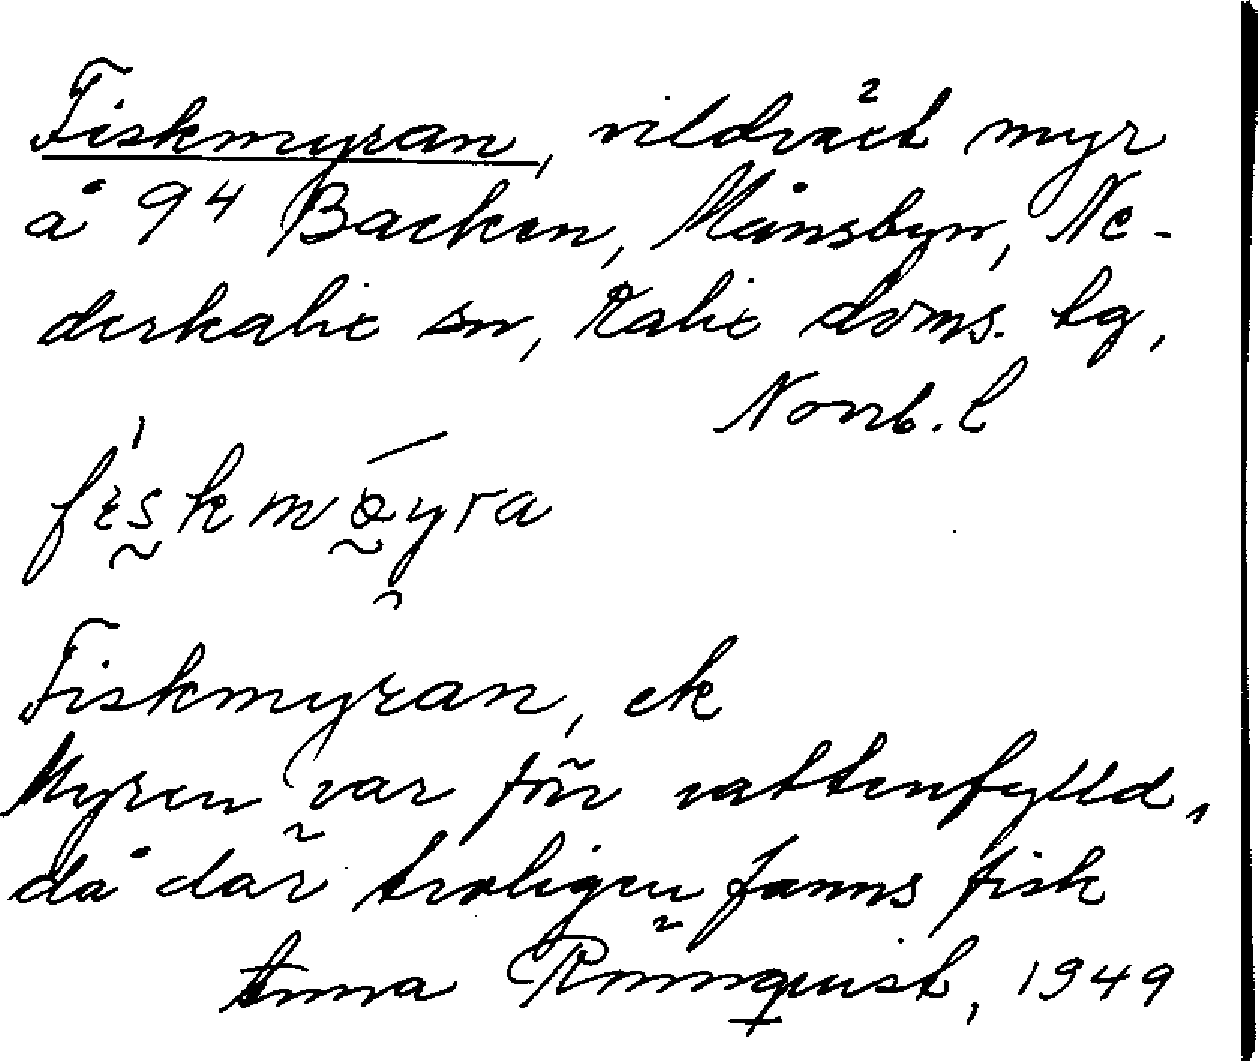 Fiskmyran, vildväxt myr
å 94 Backen, Månsbyn, Ne-
derkalix sn, Kalix doms. tg,
Norrb. l
fiskmöyra
Fiskmyran, ek
Myren var förr vattenfylld,
då där troligen fanns fisk
Anna Rönnquist, 1949